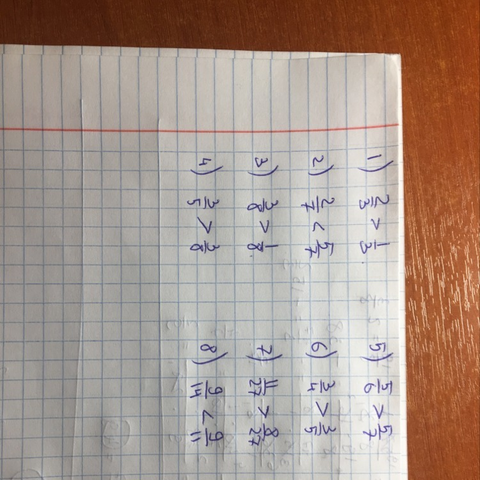 1) 2/3 > 1/3
2) 2/7 < 5/7
3) 3/8 > 1/8
4) 3/5 > 3/8
5) 5/6 > 5/7
6) 3/4 > 3/5
7) 11/27 > 8/27
8) 9/14 < 9/11